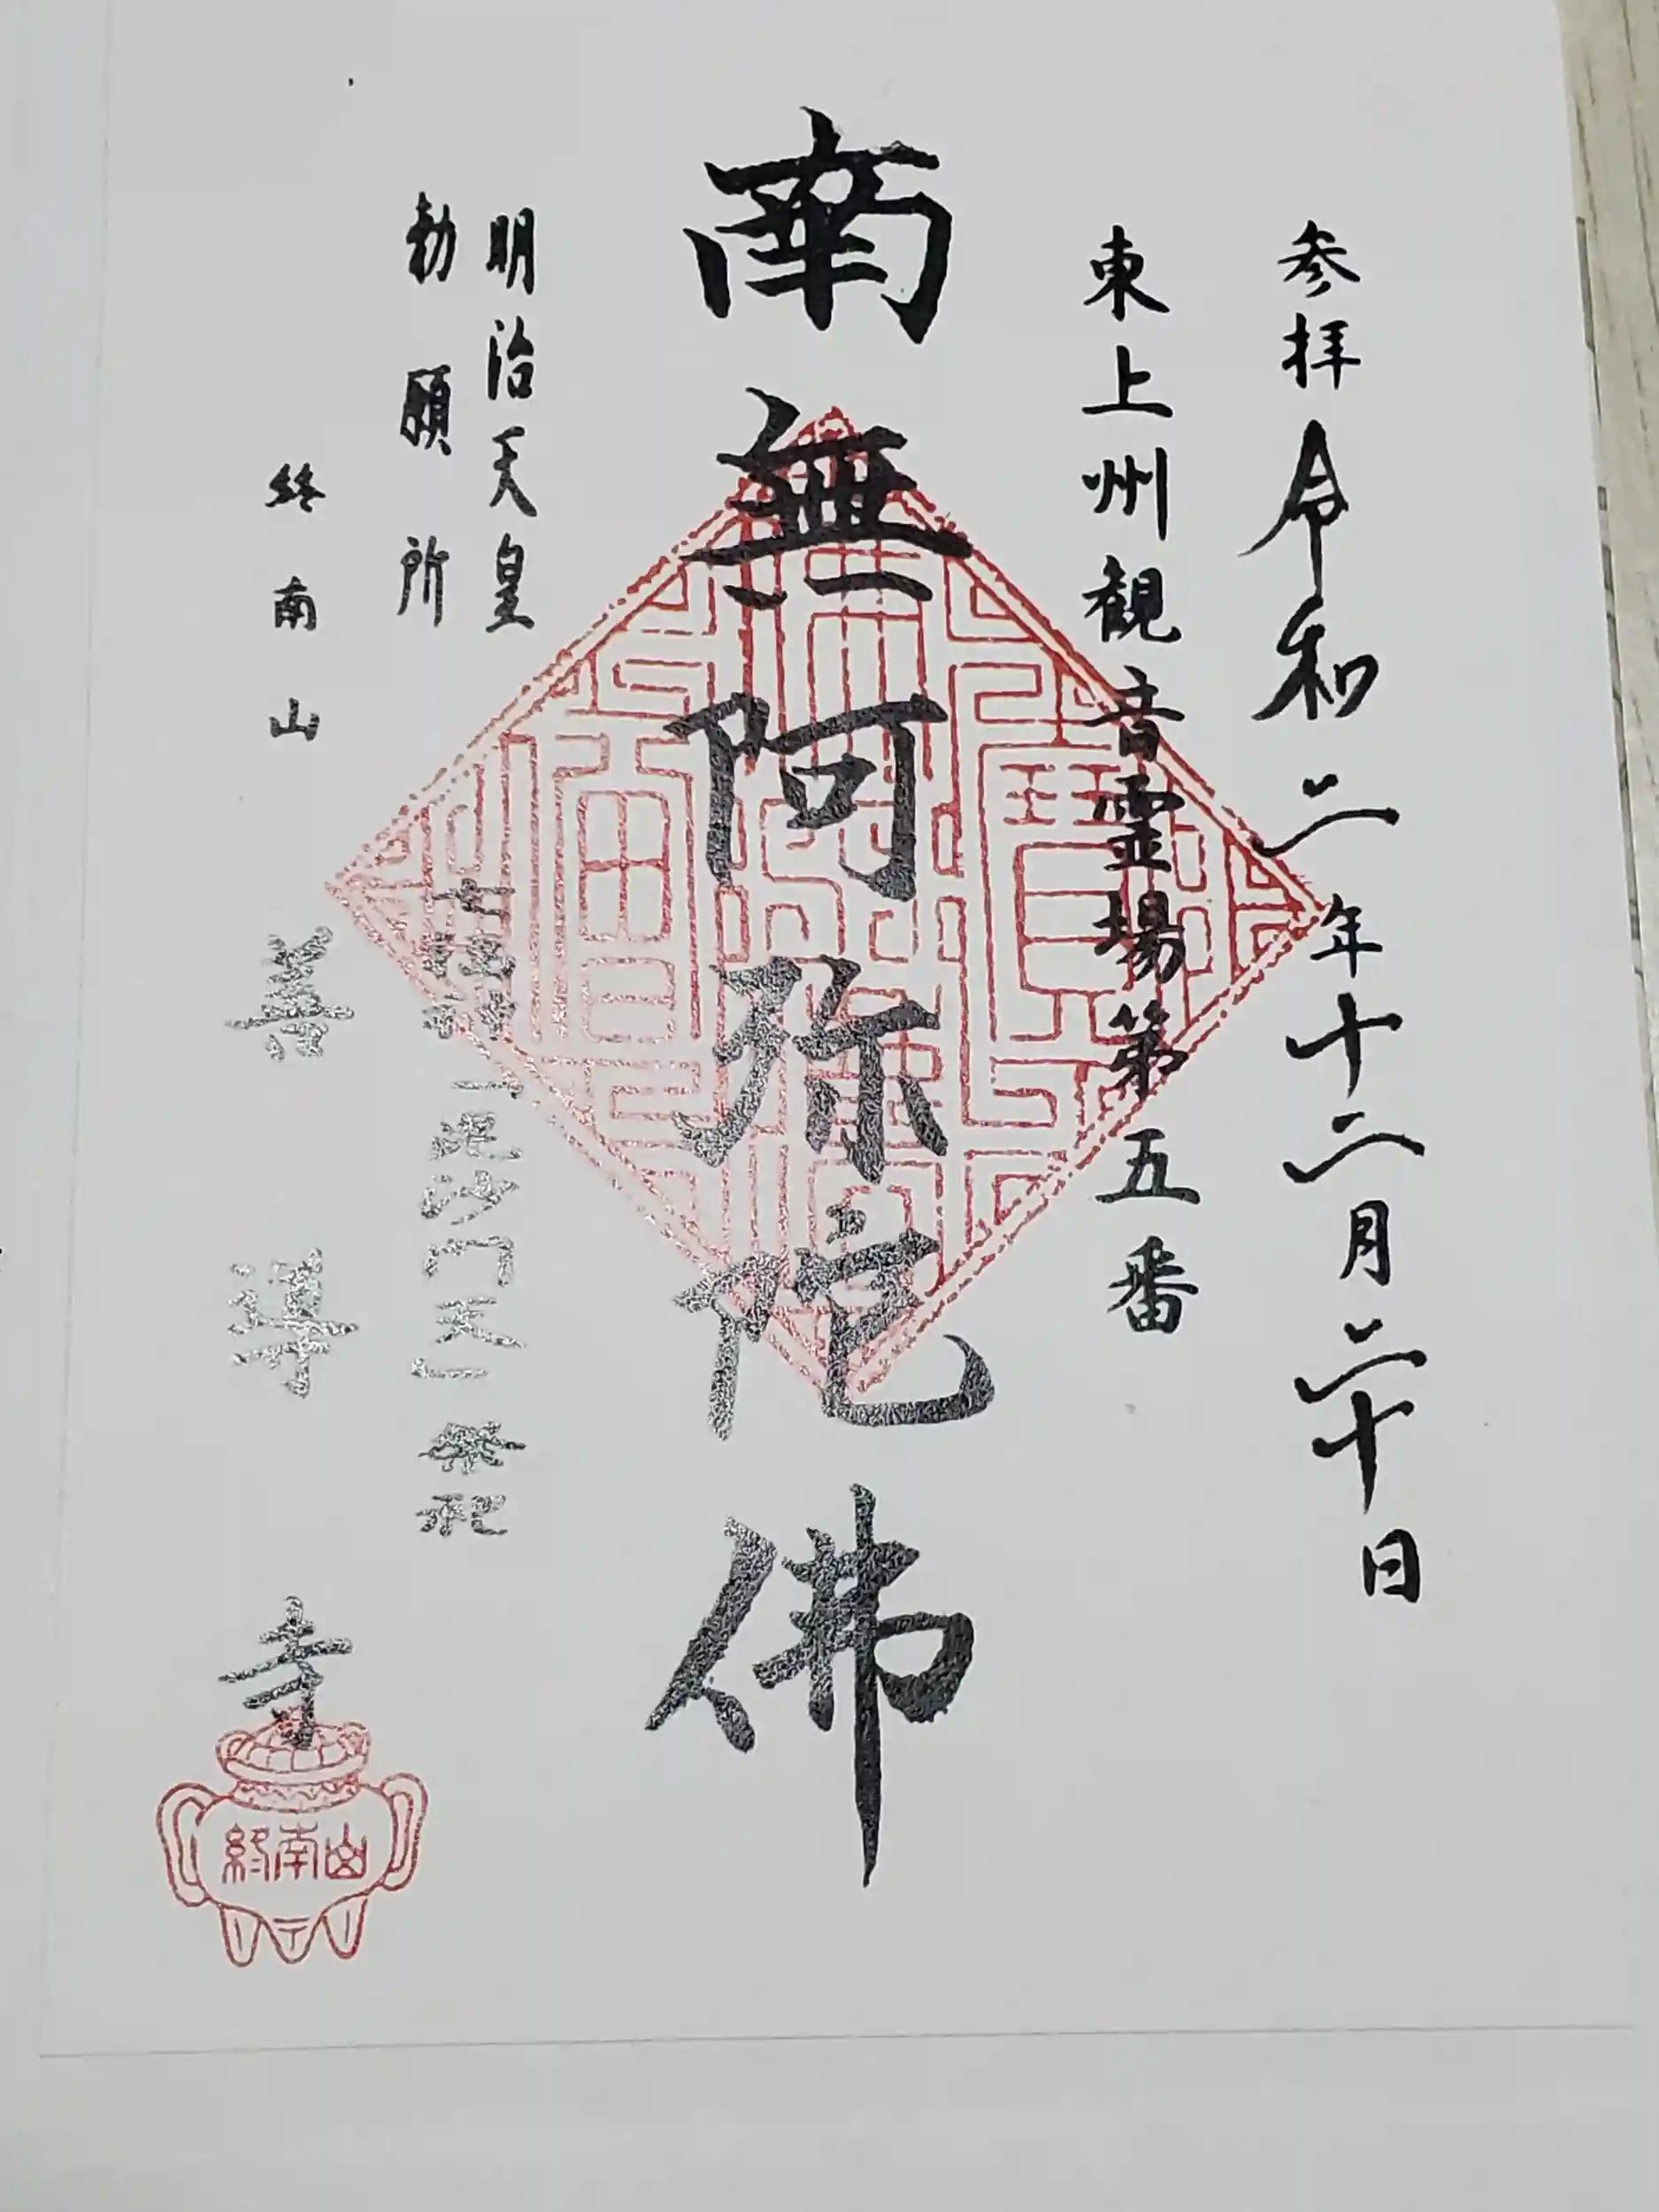 参拝 令和二年十二月二十日
東上州観音霊場第五番
南無阿弥陀佛
明治天皇
勅願所
毘沙門天 祭祀
終南山
善導寺
終南山